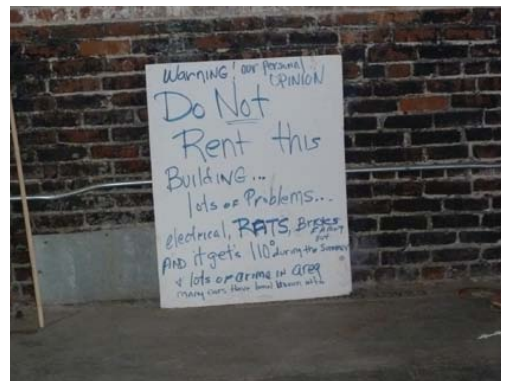 Warning! our Personal
OPINION
Do Not
Rent this
Building...
lots of Problems...
electrical, RATS, Bricks
FALLING
OUT
AND it gets 110° during the Summer
& lots of crime in area
many cars have been broken into